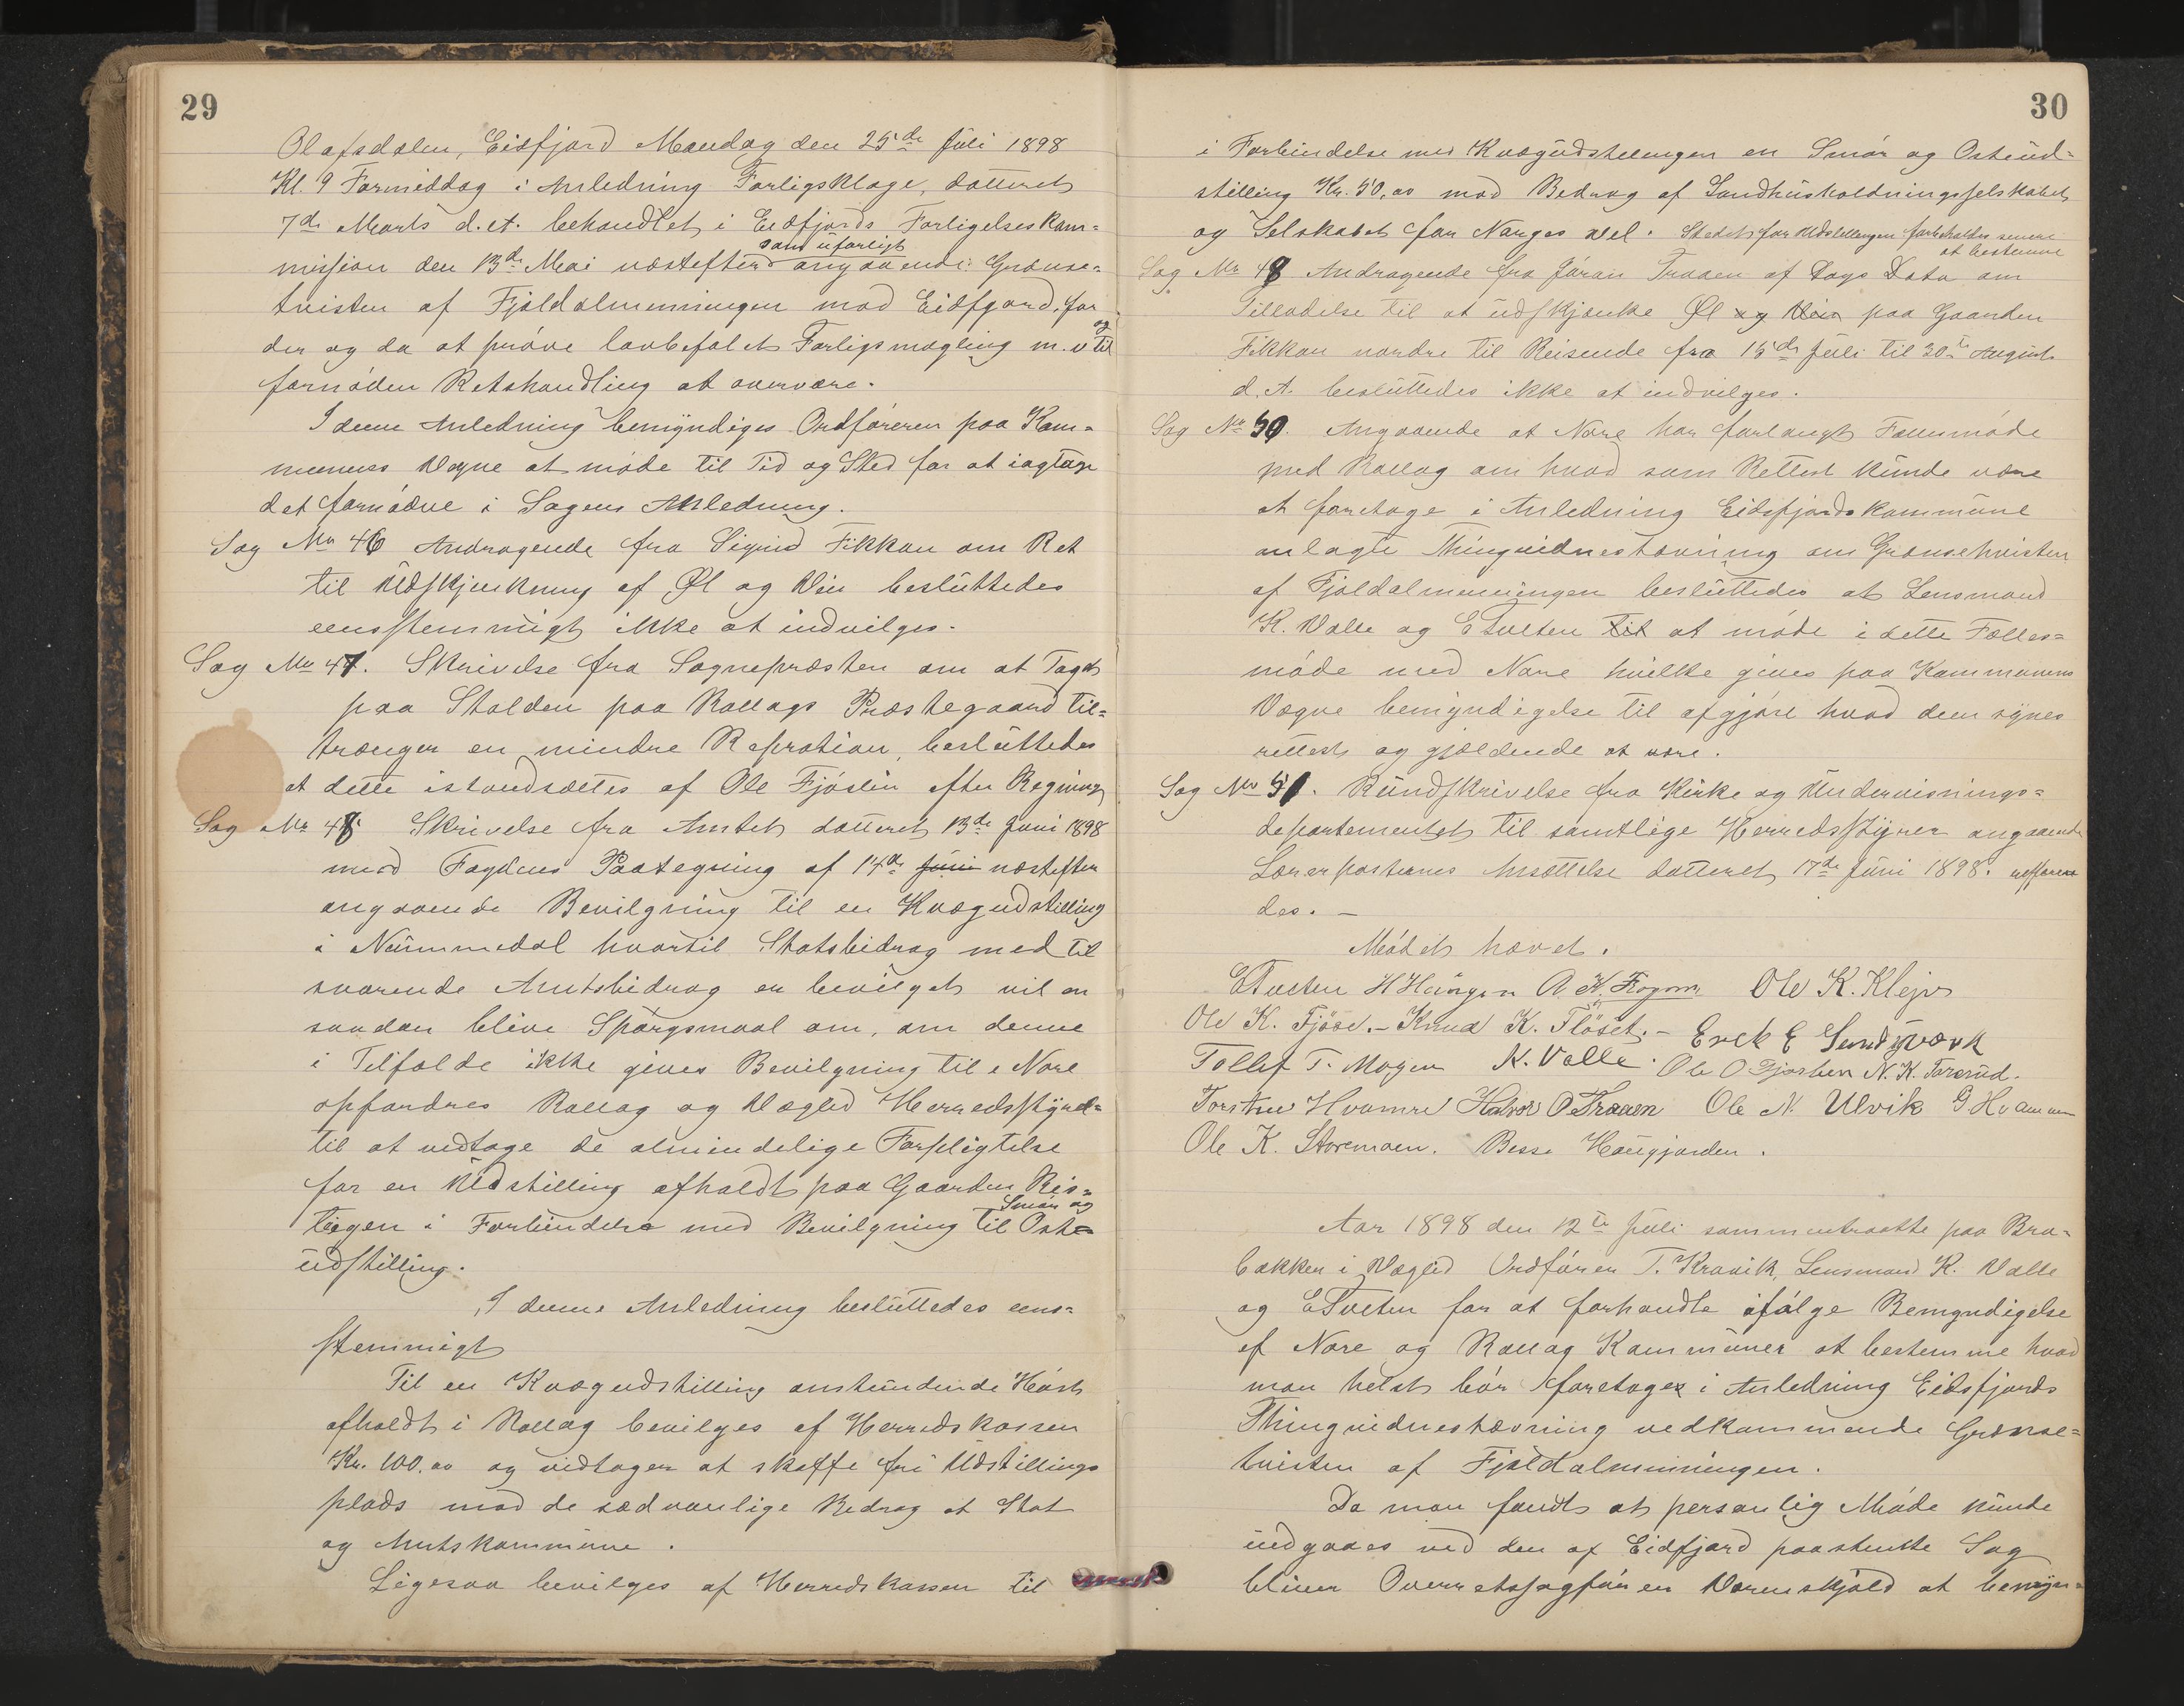 29
Olafsdalen, Eidfjord Mandag den 25de Juli 1898
Kl. 9 Formiddag i Anledning Forligsklage, datteret
7de Marts d.A. behandlet i Eidfjords Forligelseskom=
mission den 13de Mai næstefter som uforligt angaaende Grænse=
tvisten af Fjeldalmenningen mod Eidfjord, for
der og da at prøve lovbefalet Forligsmægling m.v. og til
fornøden Retshandling at overvære.
I denne Anledning bemyndiges Ordføreren paa Kom=
munens Vegne at møde til Tid og Sted for at iagtage
det fornødne i Sagens Anledning.
Sag No 46 Andragende fra Sigurd Fikkan om Ret
til Udskjenkning af Øl og Vin besluttedes
eensstemmigt ikke at indvilges.
Sag No 47. Skrivelse fra Sognepræsten om at Taget
paa Stalden paa Rollags Præstegaard til=
trænger en mindre Repration, besluttedes
at dette istandsættes af Ole Fjøslin efter Regning
Sag No 48 Skrivelse fra Amtet datteret 13de Juni 1898
med Fogdens Paategning af 14de Juni næstefter
angaaende Bevilgning til en Kvægudstilling
i Nummedal hvortil Statsbidrag med til
svarende Amtsbidrag er bevilget vil en
saadan blive Spørgsmaal om, om denne
i Tilfælde ikke gives Bevilgning til i Nore
opfordres Rollag og Vegli Herredsstyrel=
til at vedtage de almindelige Forpligtelse
for en Udstilling afholdt paa Gaarden Ris=
teigen i Forbindelse med Bevilgning til Smør og Oste=
udstilling.
I denne Anledning besluttedes eens=
stemmigt
Til en Kvægudstilling anstundende Høst
afholdt i Rollag bevilges af Herredskassen
Kr. 100.00 og vedtager at skaffe fri Udstillings
plads mod de sædvanlige Bedrag af Stat
og Amtskommune.
Ligesaa bevilges af Herredskassen til
30
i Forbindelse med Kvægudstelingen en Smør og Osteud=
stilling Kr. 50,00 mod Bedrag af Landhusholdningsselskabet
og Selskabet for Norges Vel. Stedet for Udstellingen forbeholdes senere
at bestemme
Sag No 49 Andragende fra Jøran Traaen af Dags Dato om
Tilladelse til at udskjænke Øl og Vin paa Gaarden
Fikkan nordre til Reisende fra 15de Juli til 30te August
d.A. besluttedes ikke at indvilges.
Sag No 50. Angaaende at Nore har forlangt Fællesmøde
med Rollag om hvad som Rettest kunde være
at foretage i Anledning Eidsfjords kommune
anlagte Thingvidnestævning om Grænsetvisten
af Fjeldalmenningen besluttedes at Lensmand
K. Valle og E Tveten til at møde i dette Fælles=
møde med Nore hvilke gives paa Kommunens
Vegne bemyndigelse til afgjøre hvad dem synes
rettest og gjældende at være.
Sag No 51. Rundskrivelse fra Kirke og Undervisnings=
departementet til samtlige Herredsstyrer angaaende
Lærerposternes Ansættelse datteret 17de Juni 1898. reffere
des. —
Mødet hævet.
E Tveten H Haugen A. K. Fogom Ole K. Klejv
Ole K. Fjøse. – Knud K. Fløset. – Erek E Sundgværk
Tollef T. Mogen K. Valle. Ole O Fjøslien N. K. Fososrud.
Torsten Hvamre Halvor O Traaen Ole N. Ulvik G Hvammen
Ole K. Storemoen. Besse Haugjorden.
Aar 1898 den 12te Juli sammentraatte paa Bra=
bakken i Vegli Ordfører T. Kravik, Lensmand K. Valle
og E Tveten for at forhandle ifølge Bemyndigelse
af Nore og Rollag Kommuner at bestemme hvad
man helst bør foretage i Anledning Eidsfjords
Thingvidnestævning vedkommende Grænse=
tvisten af Fjeldalmenningen.
Da man fandt at personlig Møde kunde
undgaaes ved den af Eidfjord paastente Sag
bliver Overretssagfører Vorenskjold at bemyn=